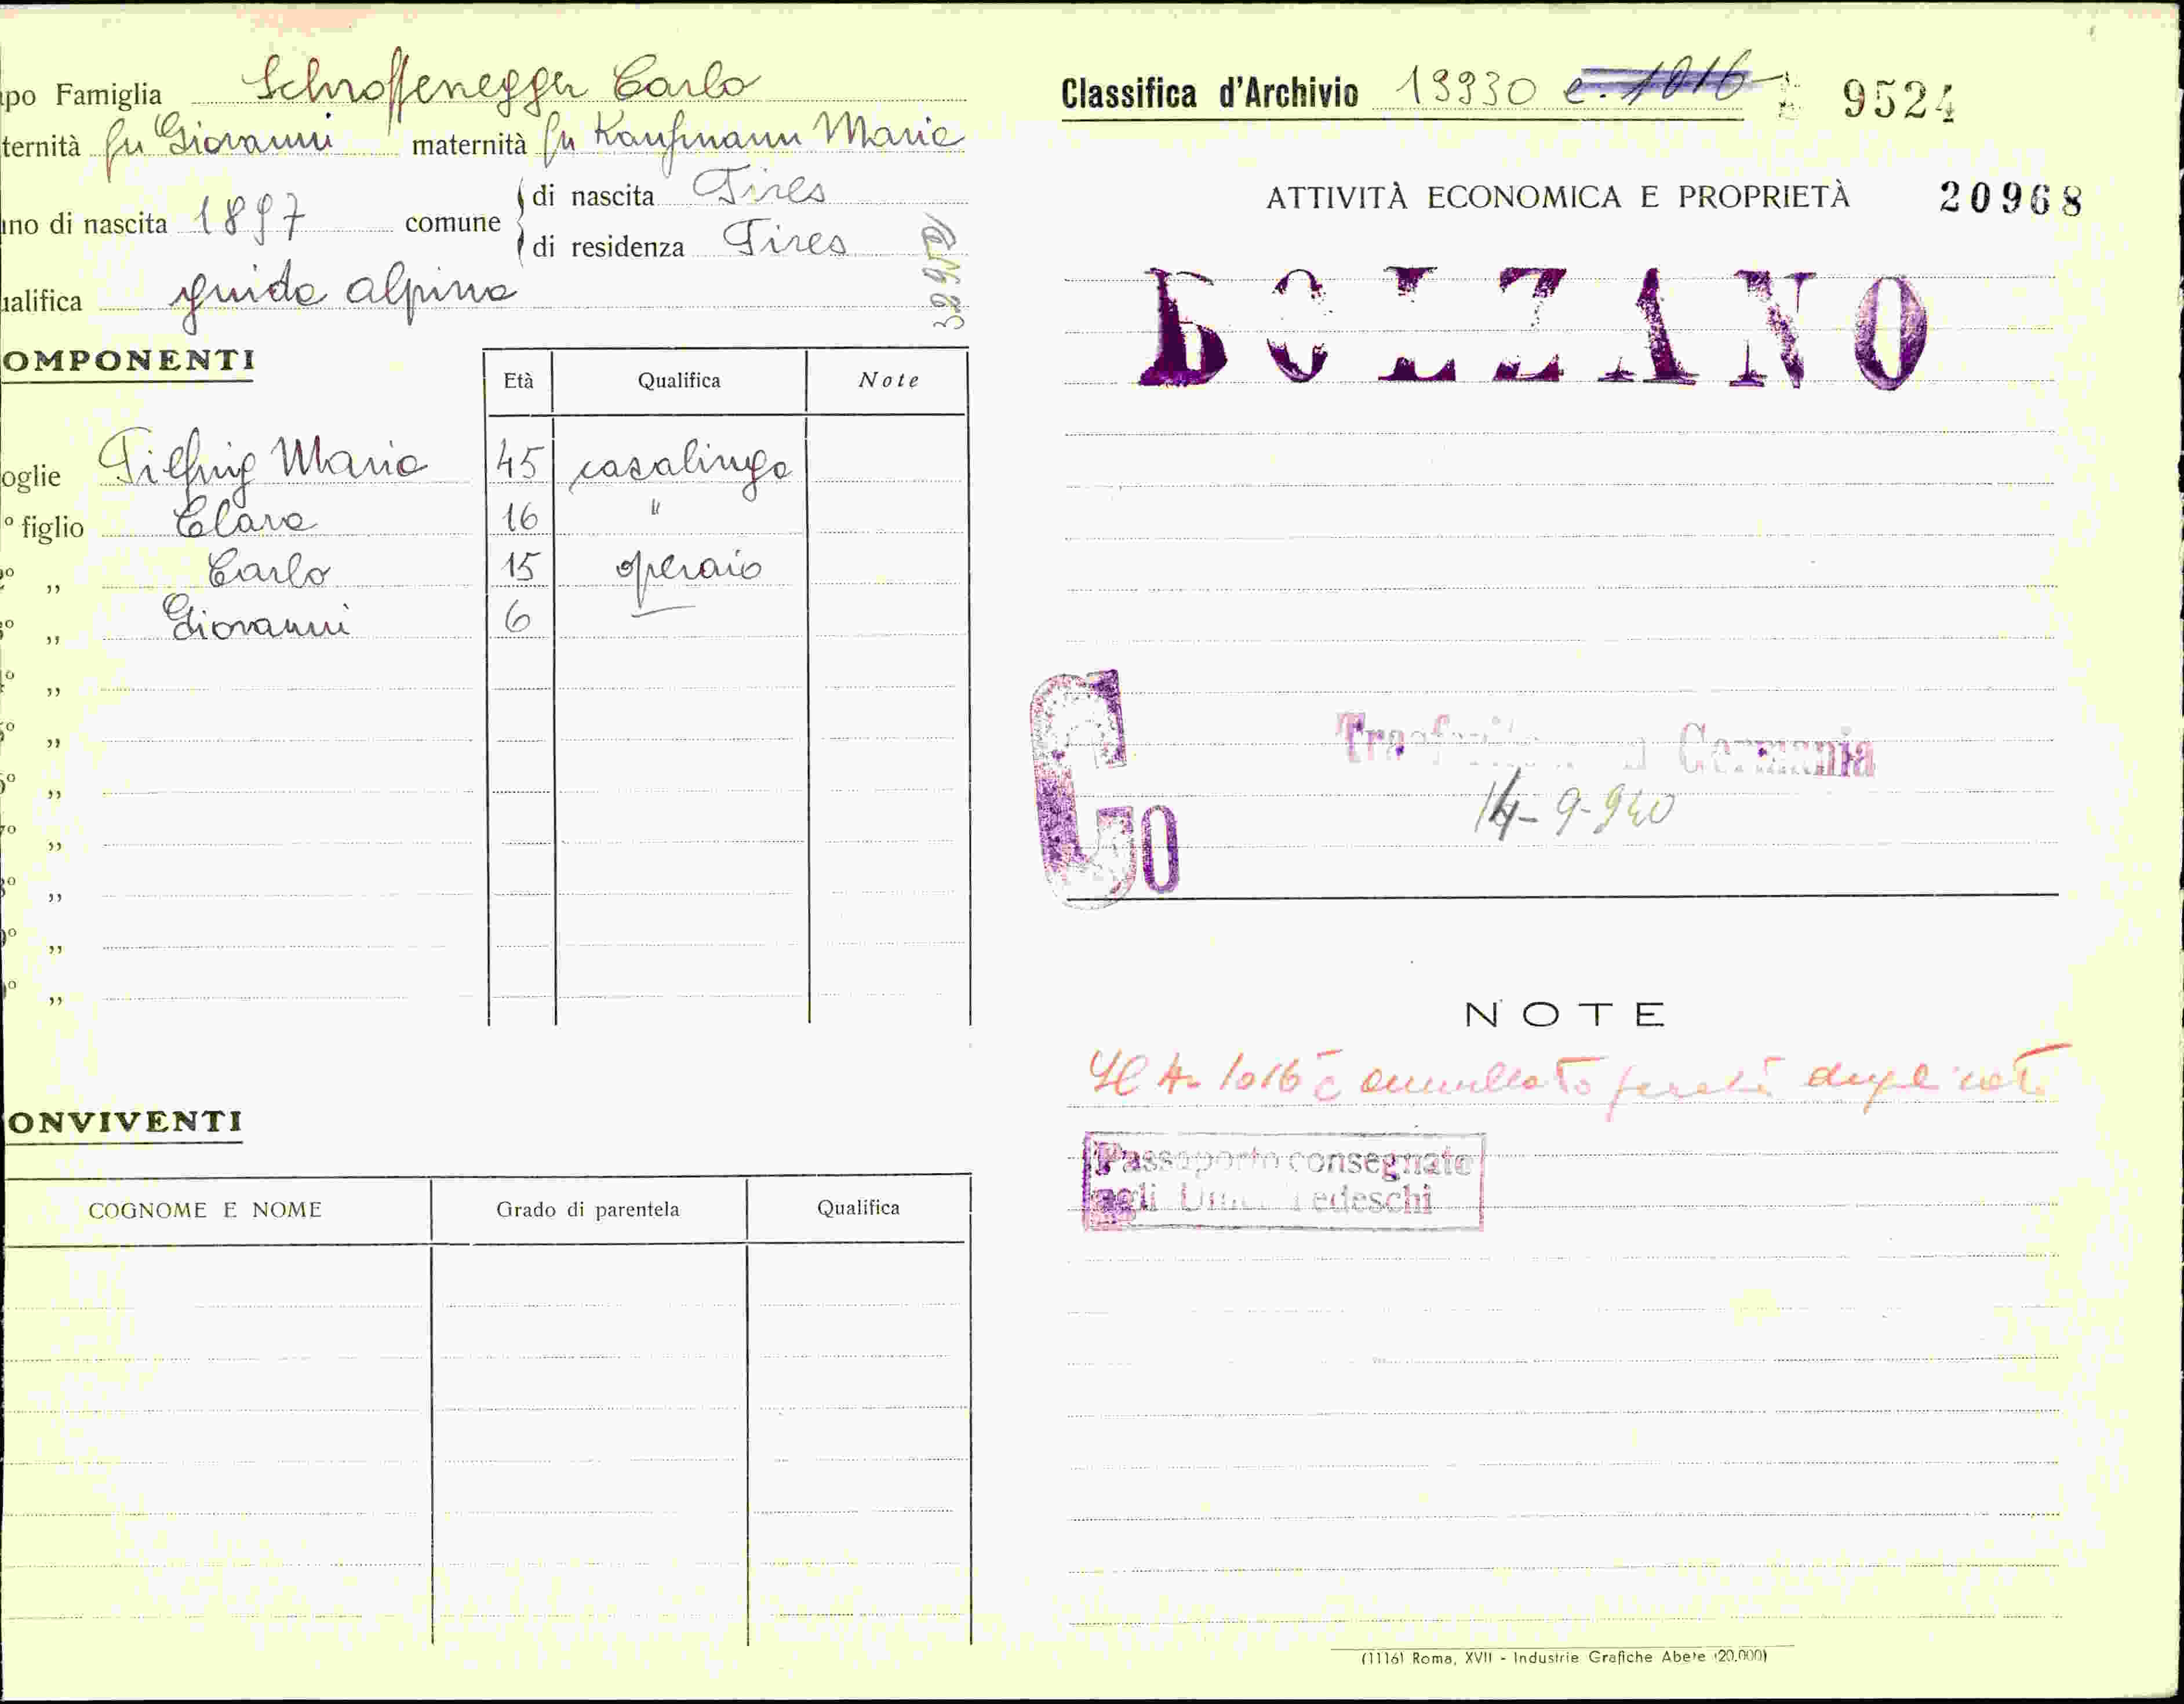 po Famiglia Schroffenegger Carlo
ternità fu Giovanni maternità fu Kaufmann Maria
no di nascita 1897 comune di nascita Tires
di residenza Tires
alifica guida alpina
OMPONENTI
Età Qualifica Note
oglie Maria 45 casalinga
° figlio Clara 16 "
° ,, Carlo 15 operaio
° ,, Giovanni 6
° ,,
° ,,
° ,,
° ,,
° ,,
° ,,
° ,,
ONVIVENTI
COGNOME E NOME Grado di parentela Qualifica
Classifica d'Archivio 19930 e. 1016 9524
ATTIVITÀ ECONOMICA E PROPRIETÀ 20968
BOLZANO
G0
Trasferito in Germania
14-9-940
NOTE
Il N. 1016 è annullato perché duplicato
Passaporto consegnato
agli Uffici Tedeschi
(1116) Roma, XVII - Industrie Grafiche Abete (20.000)